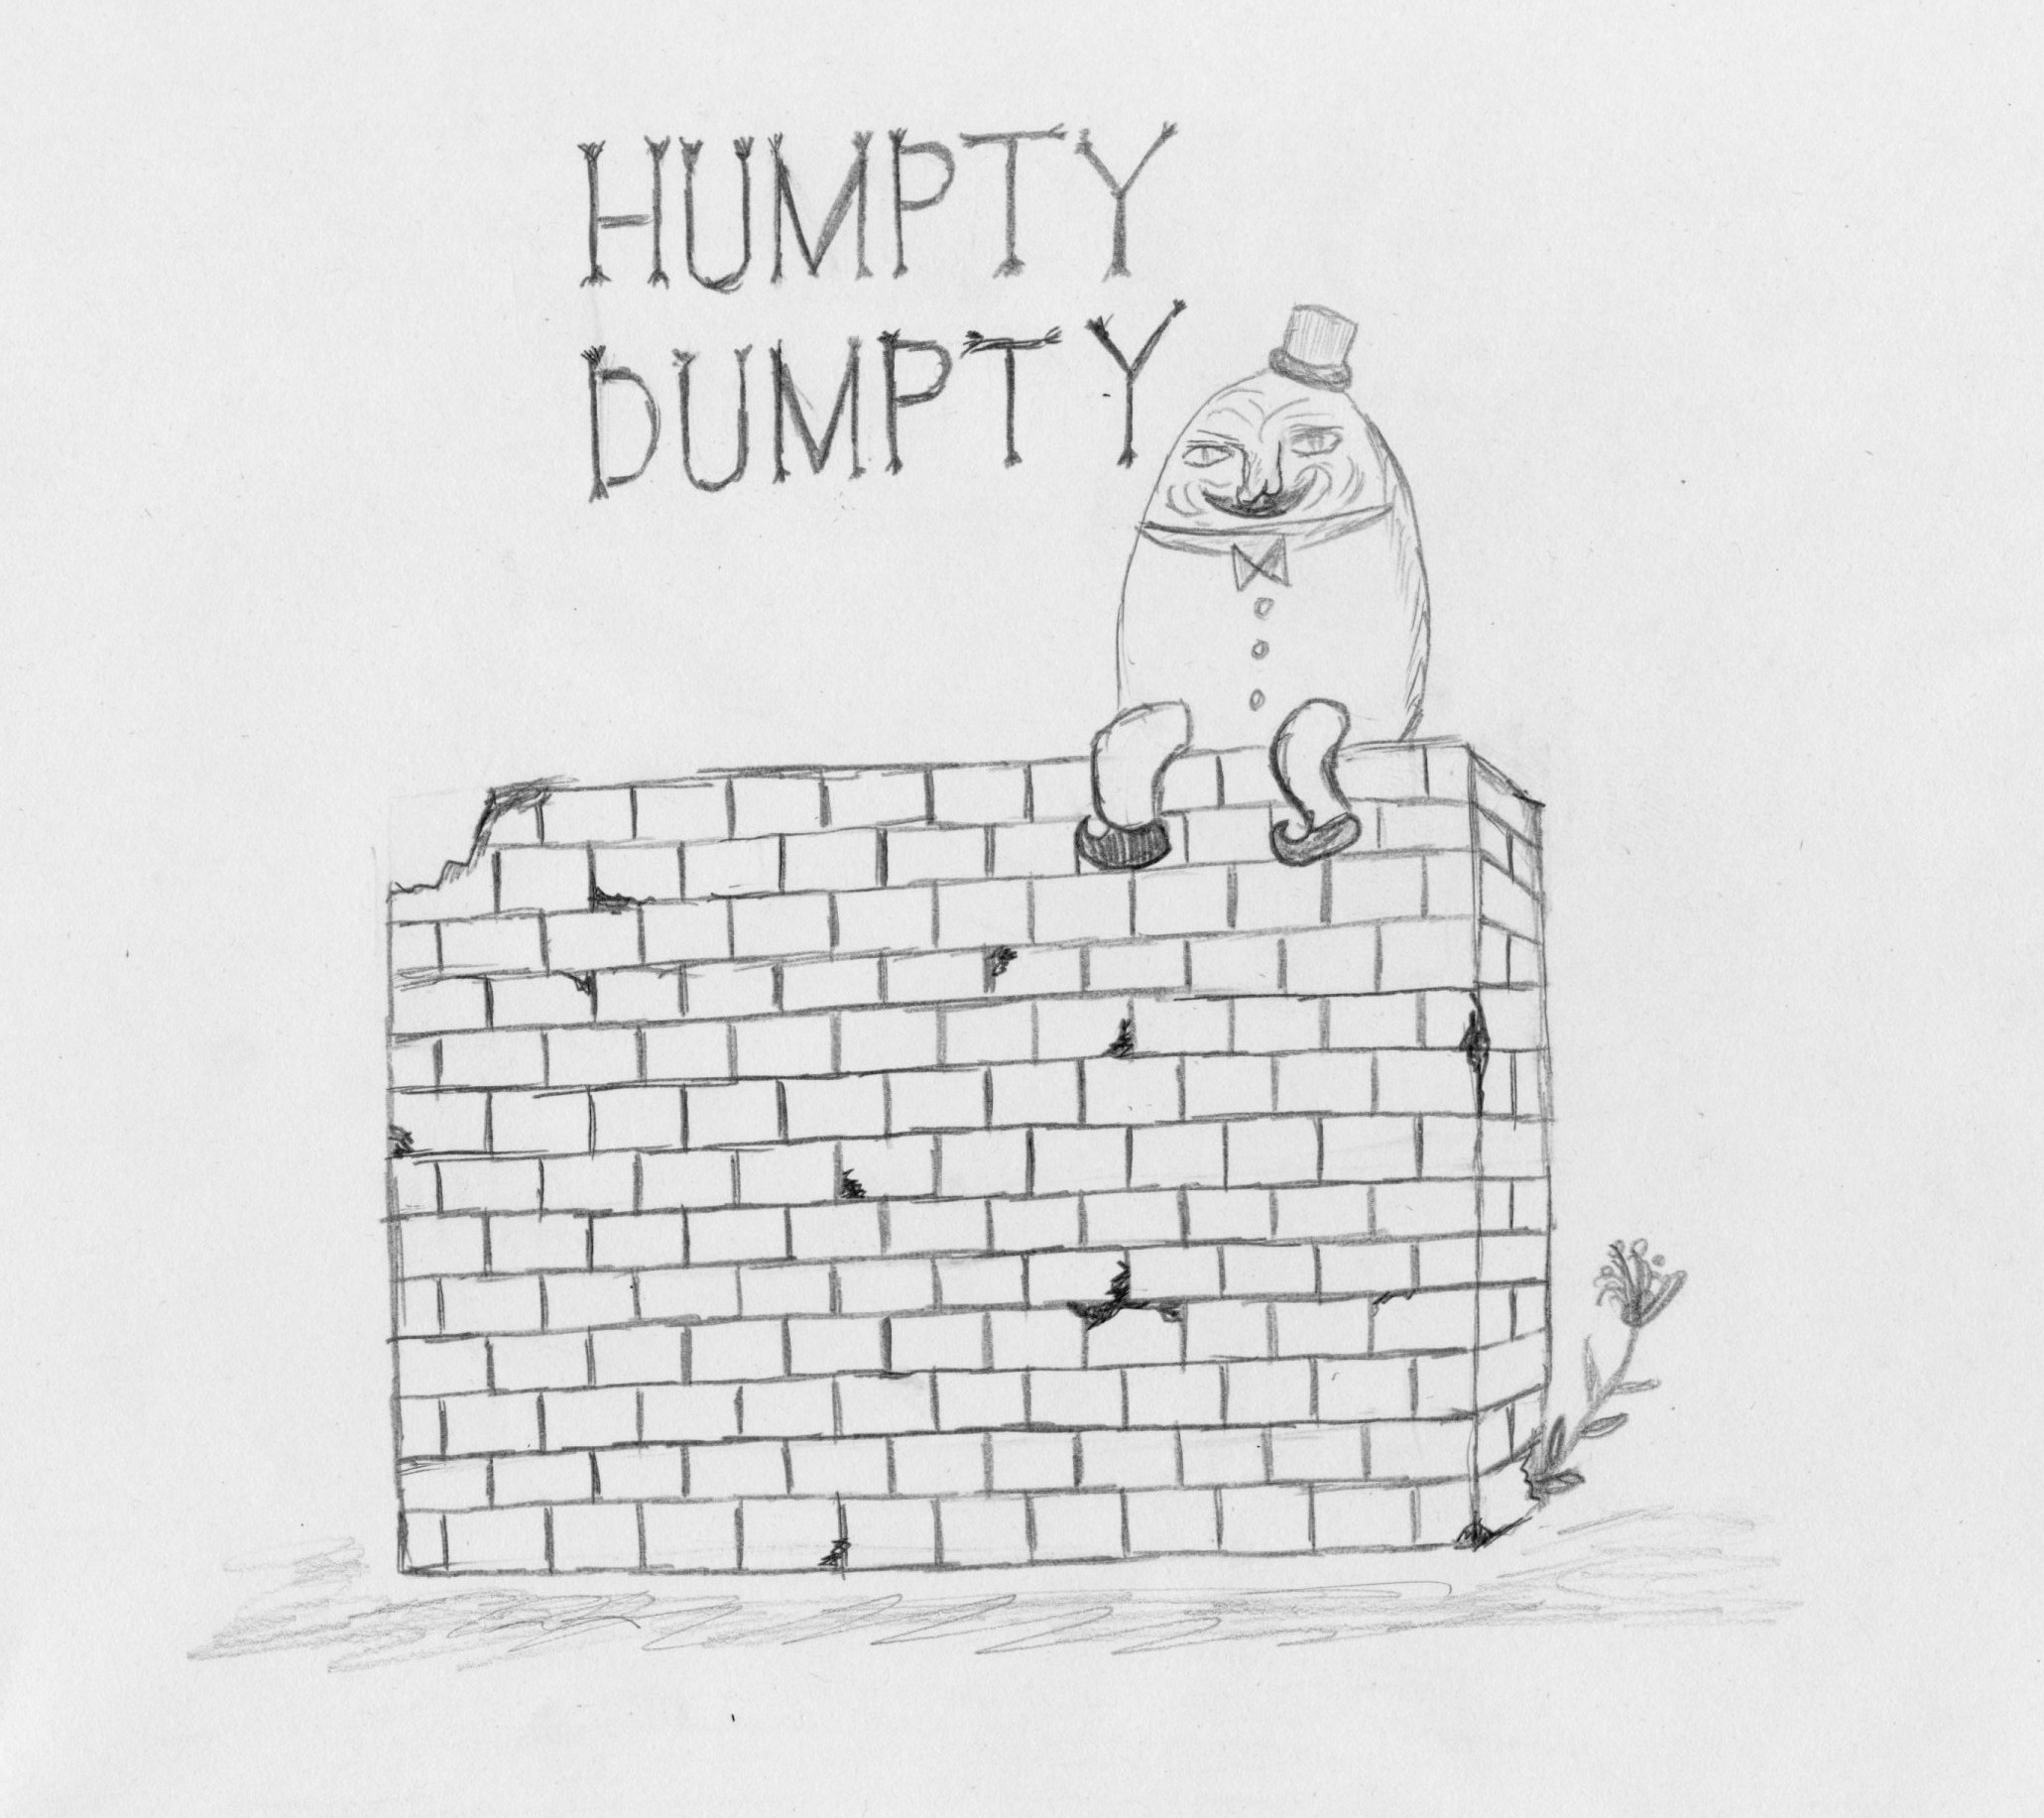 HUMPTY
DUMPTY